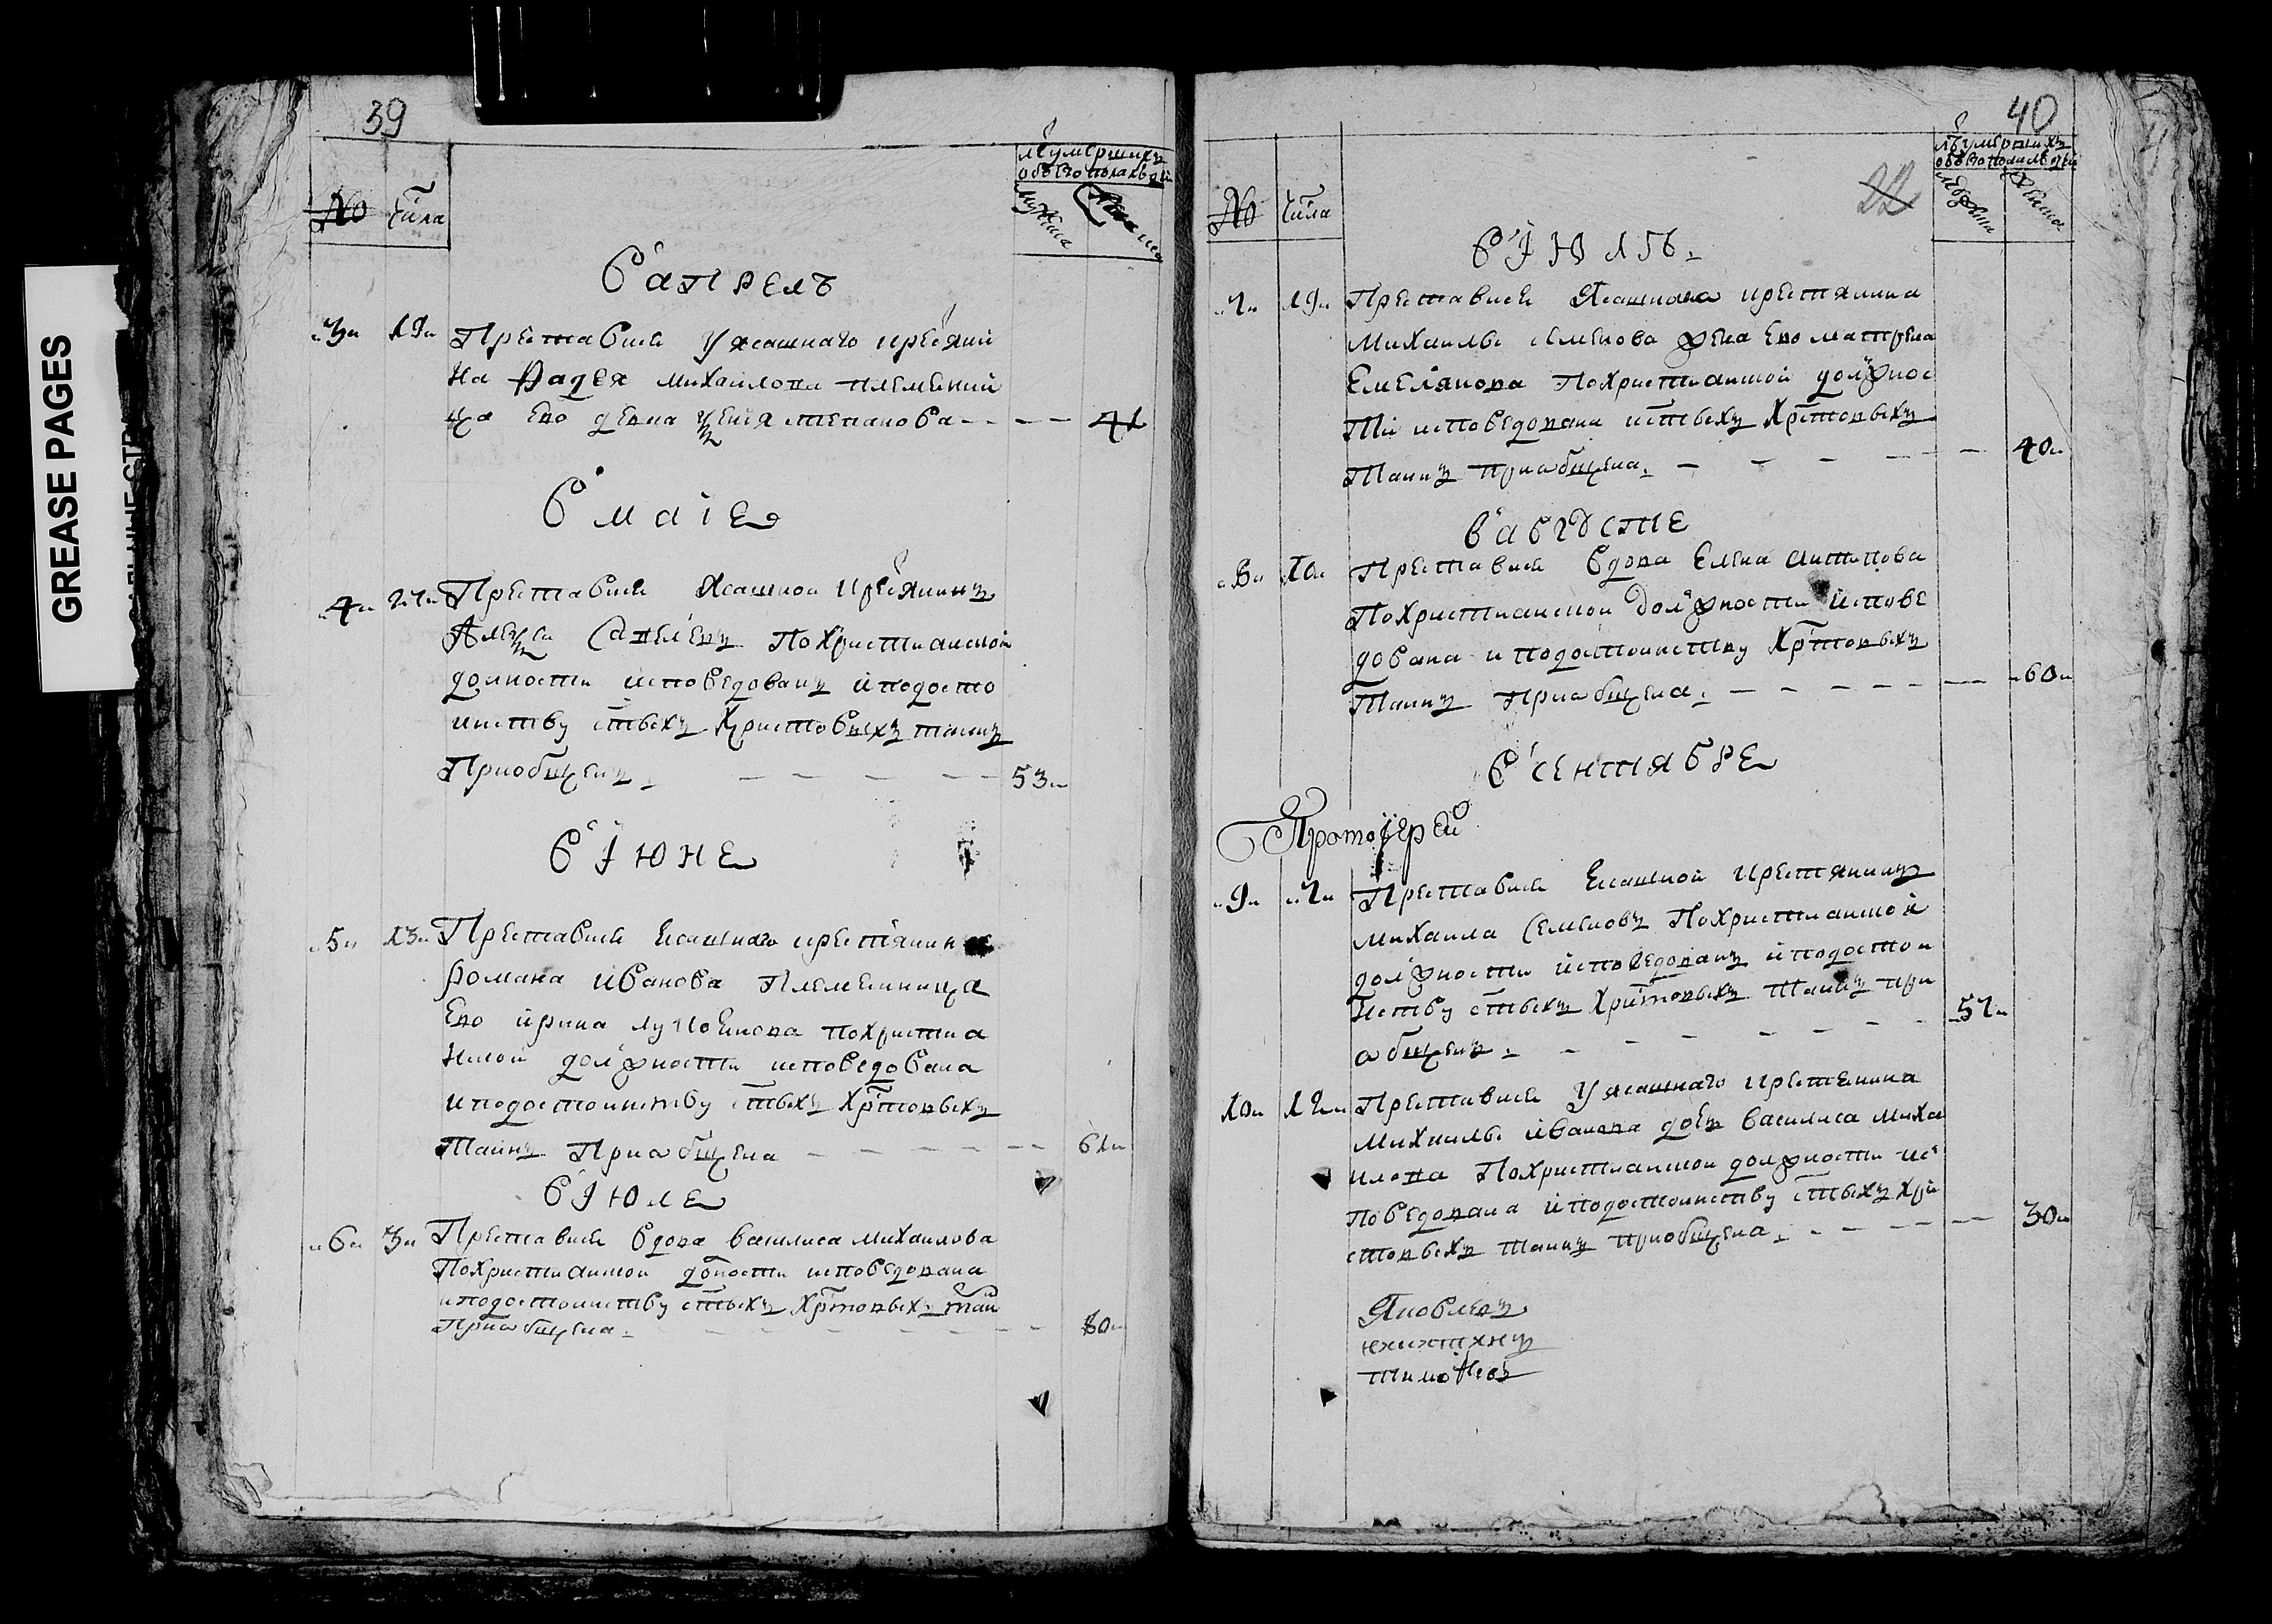 GREASE PAGES
39
лѣ умершихъ
обоѣго пола людей
№ числа
Въ апрелѣ
3 19 Преставися у ясашнаго крестяни
на Фадея михаилова племенни
ца ево девка степанова 41
В маіе
4 27 Преставися Ясашной крестянинъ
Алеѯѣи Савелевъ По христианской
долности исповедованъ и по досто
инству стыхъ Христовыхъ таинъ
Приобщенъ 53
В Iюне
5 13 Преставися Есашнаго крестянина
романа иванова Племенница
Ево ирина по христиа
нской должности исповедована
и по достоинству стыхъ Хртовыхъ
Таинъ Приобщена 61
В Iюле
6 3 Преставися вдова василиса михаилова
По христианской доности исповедована
и по достоинству стыхъ Хртовыхъ таи
Приобщена 80
40
22
лѣ умершихъ
обоѣго пола людей
№ числа
В Iюлѣ
7 19 Преставися Ясашнова крестянина
михаилы семенова жена Ево матрена
Емелянова По христианской должнос
ти исповедована и стыхъ Хртовыхъ
Таинъ приобщена 40
В августе
8 10 Преставися Вдова Елена антипова
По христианской должности испове
дована и по достоинству Хртовыхъ
Таинъ Приобщена 60
В сентябре
Протоiерей
9 7 Преставися Есашной крестянинъ
михаила Семеновъ По христианской
должности исповедованъ и по достои
нству стыхъ Христовыхъ Таинъ при
общенъ 57
10 12 Преставися У ясашнаго крестянина
михаилы иванова дочь василиса миха
илова По христианской должности ис
поведована и по достоинству стыхъ Хри
стовыхъ таинъ приобщена 30
Яковлевъ
Тимофеевъ